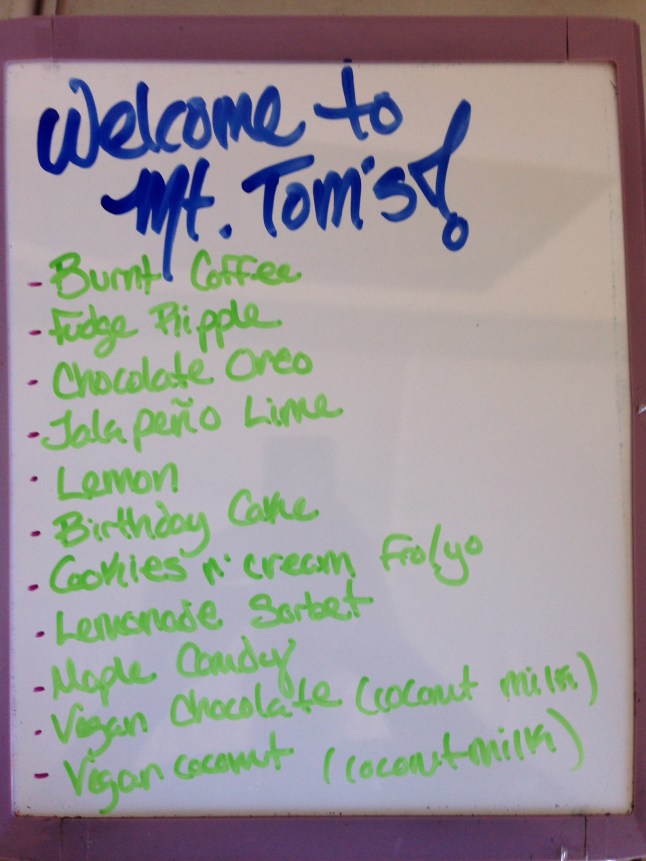 Welcome to
Mt. Tom's!
- Burnt Coffee
- Fudge Ripple
- Chocolate Oreo
- Jalapeño Lime
- Lemon
- Birthday Cake
- Cookies n' cream Fro/yo
- Lemonade Sorbet
- Maple Candy
- Vegan Chocolate (coconut milk)
- Vegan coconut (coconut milk)